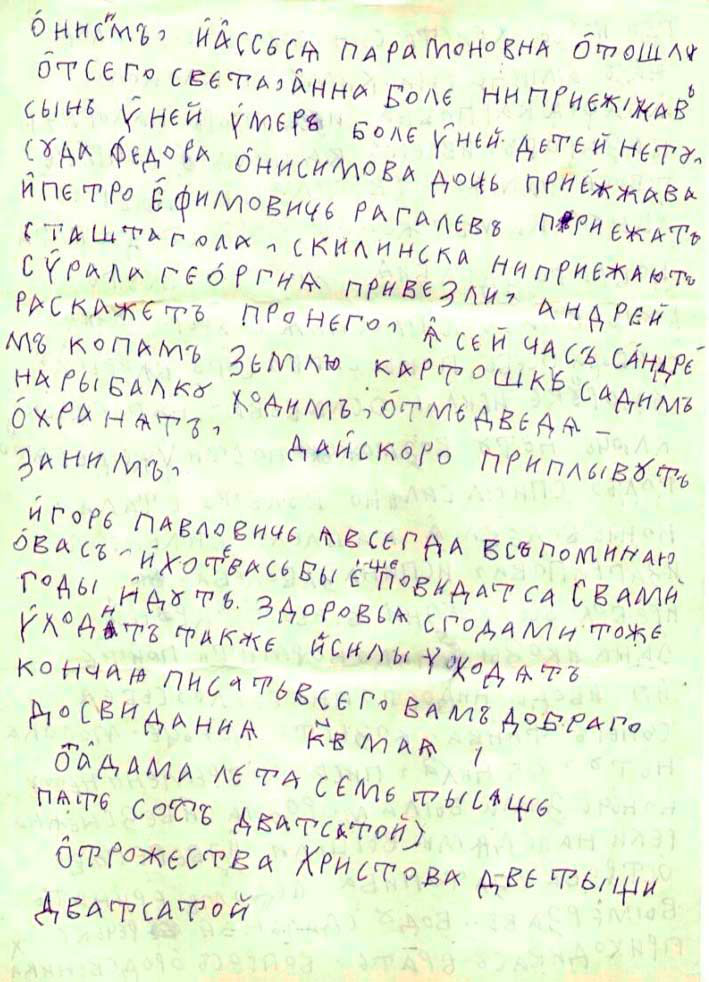 О́НИСИМЪ, И҆А҆ССЬСѦ ПАРАМОНОВНА О́ТОШЛꙊ
О҆ТСЕГО СВЕТА, А҆ННА БОЛЕ НИПРИЕЖЖАВЬ
СЫНЬ У҆НЕЙ У́МЕРЪ БОЛЕ У҆НЕЙ ДЕТЕЙ НЕТꙊ,
СꙊДА ФЕДОРА О́НИСИМОВА ДОЧЬ ПРИЕ́ЖЖАВА
И҆ПЕТРО Е҆ФИМОВИЧЬ РАГАЛЕВЪ ПРИЕЖАТЬ
СТАШТАГОЛА, СКИЛИНСКА НИПРИЕЖАЮТЬ
СУ́РАЛА ГЕО́РГИѦ ПРИВЕЗЛИ, АНДРЕЙ
РАСКАЖЕТЪ ПРОНЕГО, А҆ СЕЙ ЧАСЪ САНДРЕ́
МЪ КОПАМЪ ЗЕМЛЮ КАРТОШКЪ САДИМЪ
НАРЫБАЛКꙊ ХОДИМЪ, О́ТМЕДВЕДѦ
О́ХРАНѦТЪ, ДАЙСКОРО ПРИПЛЫВꙊТЬ
ЗАНИМЪ,
И҆ГОРЕ ПАВЛОВИЧЬ ѦВСЕГДА ВСЪПОМИНАЮ
О́ВАСЪ, И҆ХОТЕВАСЬБЫ Е҆ЩЕ ПОВИДАТСА СВАМИ
ГОДЫ И҆ДꙊТЬ. ЗДОРОВЬѦ СГОДАМИ ТОЖЕ
У҆ХОДНѦТЪ ТАКЖЕ И҆СИЛЫ УХОДѦТЪ
КОНЧАЮ ПИСАТЬВСЕГО ВАМЪ ДОБРАГО
ДОСВИДАНИѦ КВ МАѦ,
ОТА҆ДАМА ЛЕТА СЕМЬ ТЫСѦЩЬ
ПѦТЬ СОТЪ ДВАТСѦТОЙ)
О҆ТРОЖЕСТВА ХРИСТОВА ДВЕ ТЫЩИ
ДВАТСАТОЙ